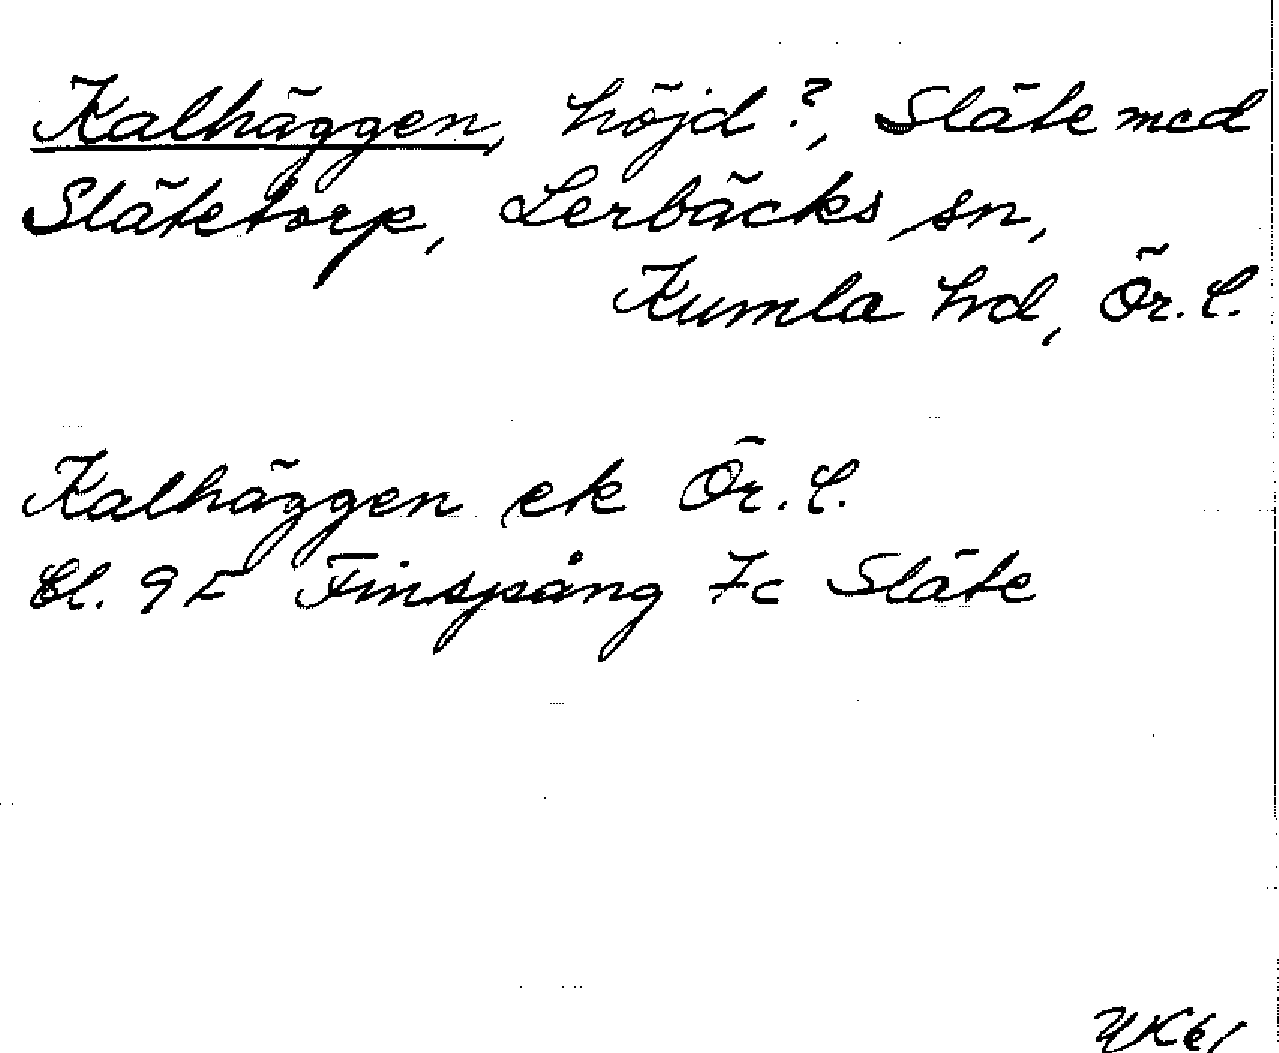 Kalhäggen, höjd?, Släte med
Slätetorp, Lerbäcks sn,
Kumla hd, Ör. l.
Kalhäggen ek Ör. l.
Bl. 9F Finspång 7c Släte